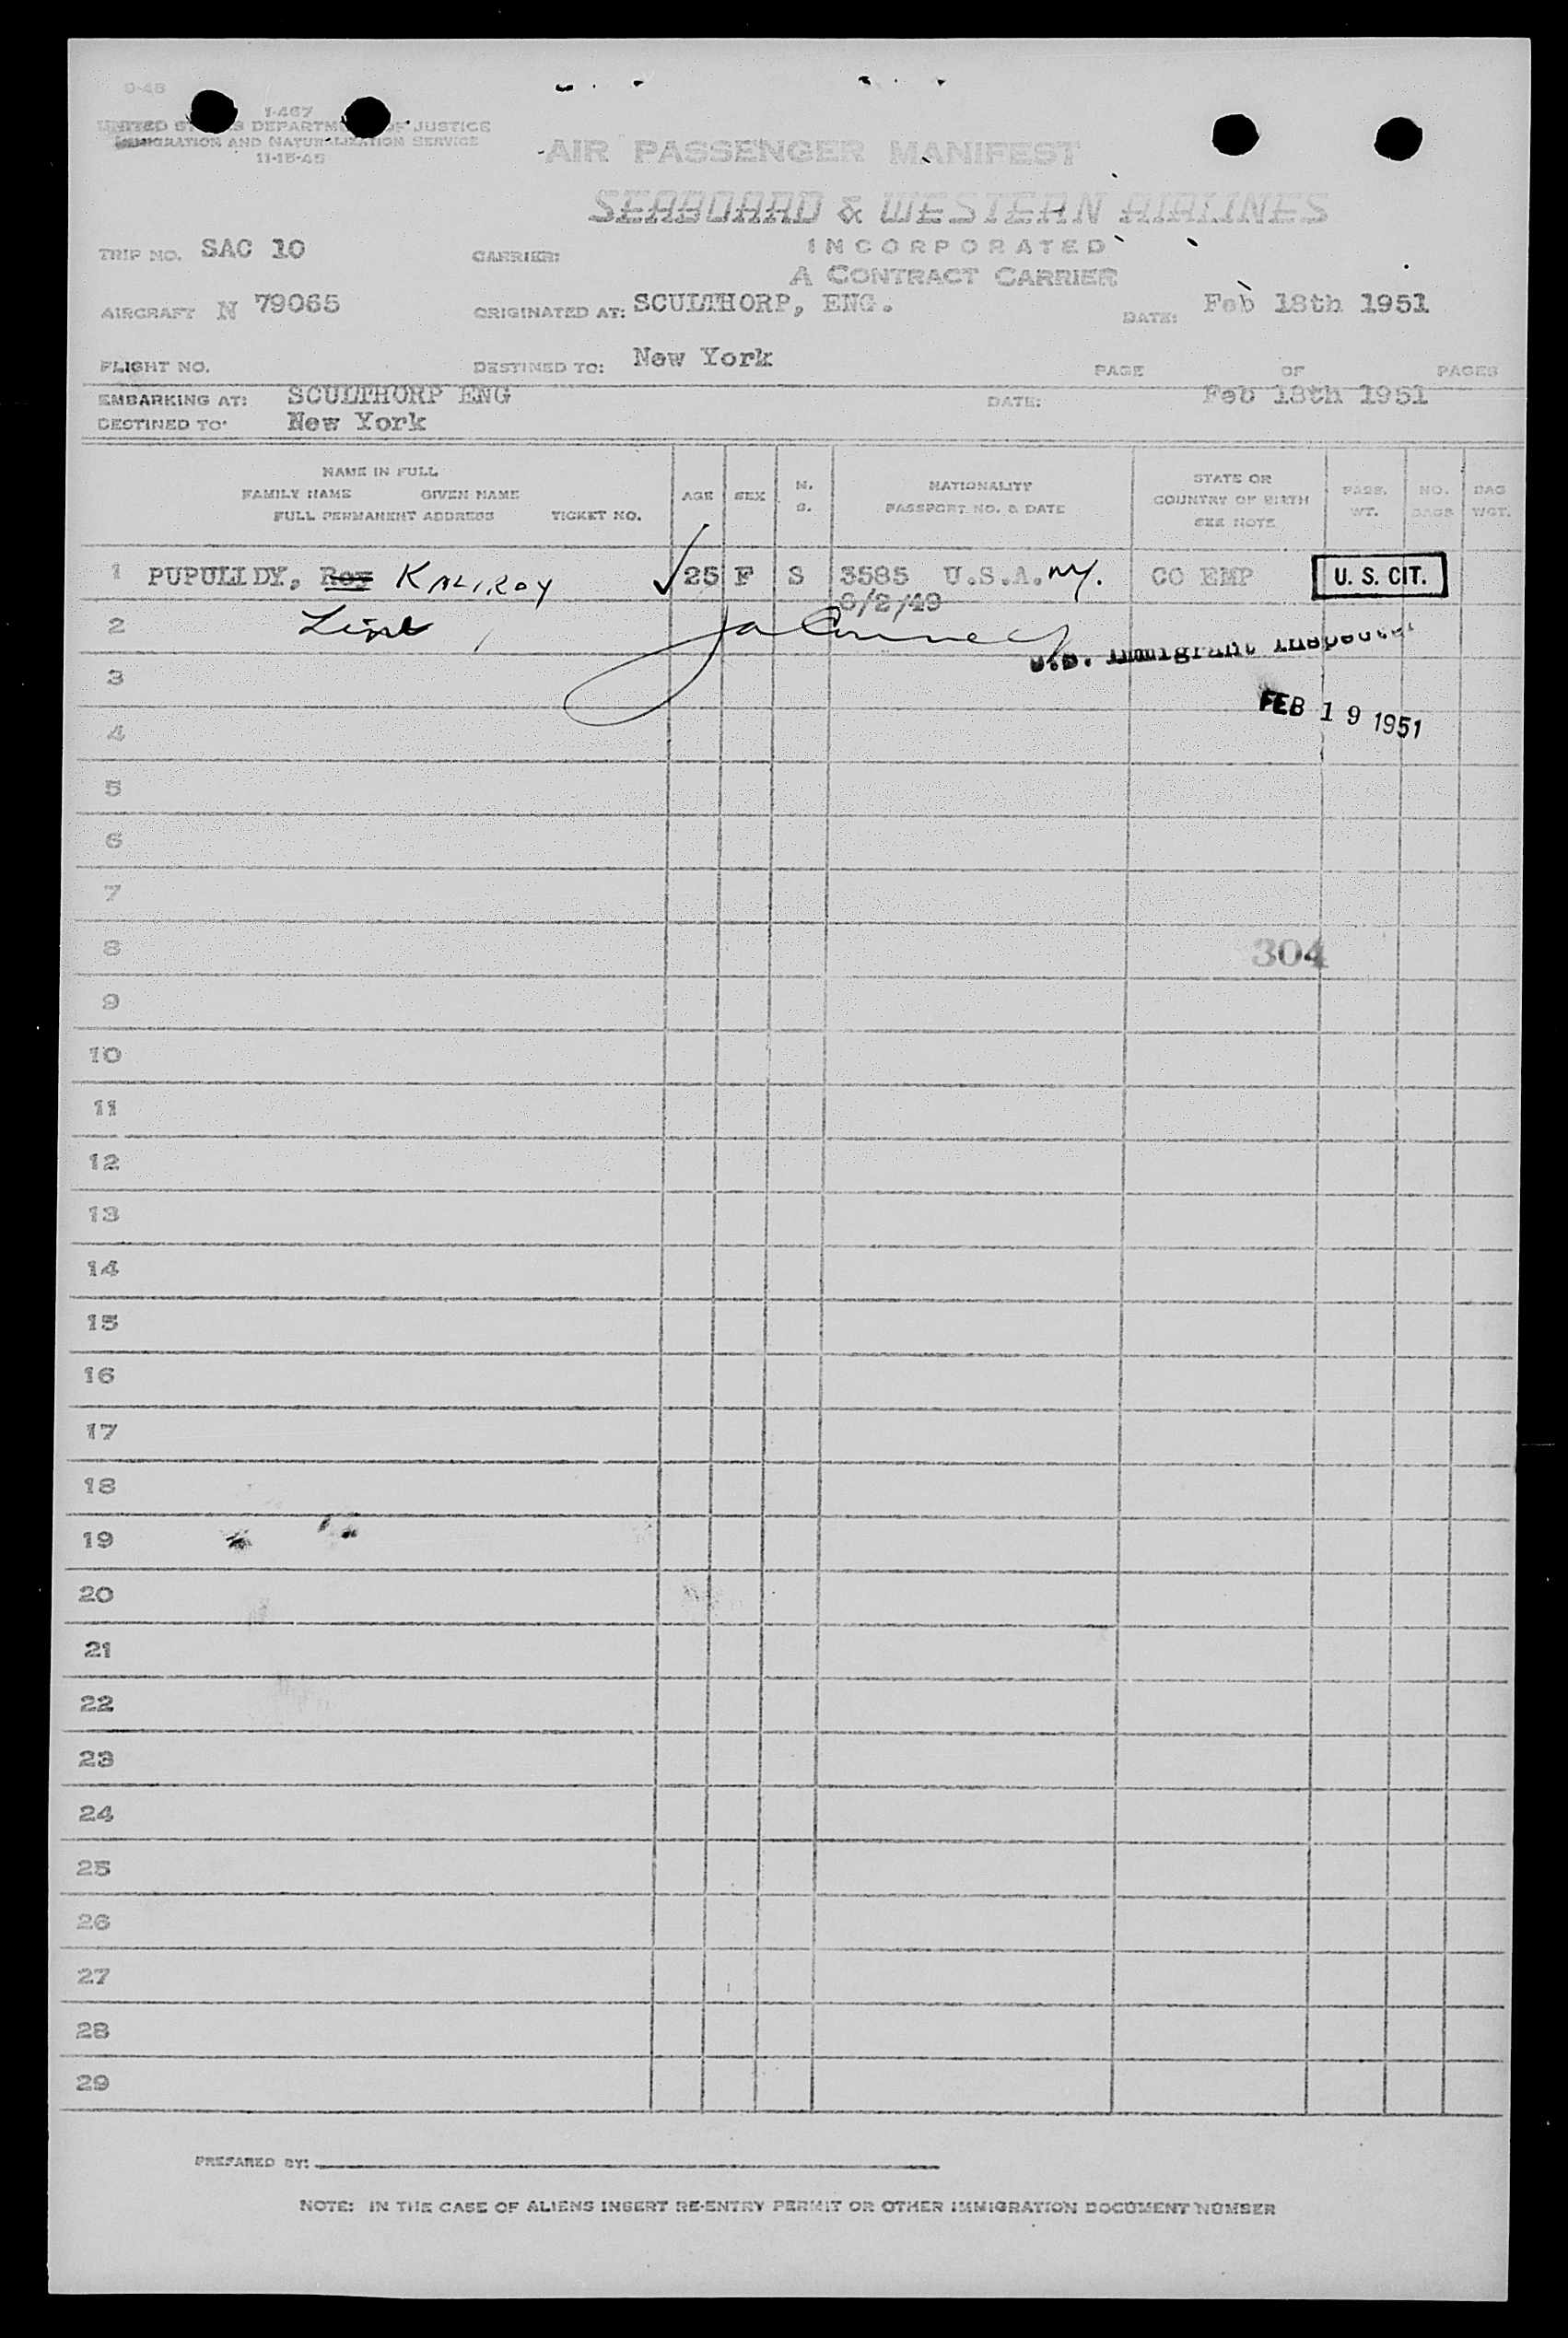 9-48
I-467
UNITED STATES DEPARTMENT OF JUSTICE
IMMIGRATION AND NATURALIZATION SERVICE
11-15-45
AIR PASSENGER MANIFEST
SEABOARD & WESTERN AIRLINES
INCORPORATED
A CONTRACT CARRIER
TRIP NO. SAC 10 CARRIER:
AIRCRAFT N 79065 ORIGINATED AT: SCULTHORP, ENG. DATE: Feb 18th 1951
FLIGHT NO. DESTINED TO: New York PAGE OF PAGES
EMBARKING AT: SCULTHORP ENG DATE: Feb 18th 1951
DESTINED TO: New York
NAME IN FULL
FAMILY NAME GIVEN NAME
FULL PERMANENT ADDRESS TICKET NO.
AGE SEX M. S.
NATIONALITY
PASSPORT NO. & DATE
STATE OR
COUNTRY OF BIRTH
SEE NOTE
PASS. WT. NO. BAGS BAG WGT.
1 PUPULIDY, Roy KALIROY 25 F S 3585 U.S.A. NY. CO EMP U. S. CIT.
6/2/49
2
U.S. Immigrant Inspector
3
FEB 19 1951
4
5
6
7
8 304
9
10
11
12
13
14
15
16
17
18
19
20
21
22
23
24
25
26
27
28
29
PREPARED BY:
NOTE: IN THE CASE OF ALIENS INSERT RE-ENTRY PERMIT OR OTHER IMMIGRATION DOCUMENT NUMBER